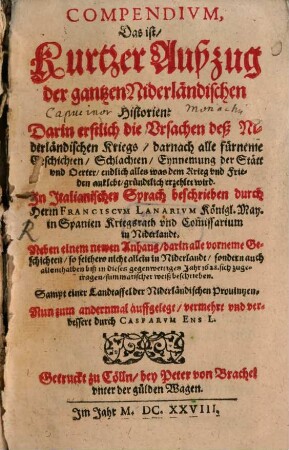 COMPENDIVM,
Das ist/
Kurtzer Außzug
der gantzen Niderländischen
Capucinor Monach
Historien:
Darin erstlich die Vrsachen deß Ni-
derländischen Kriegs / darnach alle fürneme
Geschichten / Schlachten / Eynnemung der Stätt
vnd Oerter / endlich alles was dem Krieg vnd Frie-
den anklebt / gründtlich erzehlet wird.
In Italianischer Sprach beschrieben durch
Herrn FRANCISCVM LANARIVM Königl. May.
in Spanien Kriegsrath vnd Comissarium
in Niderlandt.
Neben einem newen Anhang / darin alle vorneme Ge-
schichten / so seithero nicht allein in Niderlandt / sondern auch
allenthalben biß in dieses gegenwertigen Jahr 1628. sich zuge-
tragen / summarischer weiß beschrieben.
Sampt einer Landtaffel der Niderländischen Prouintzen,
Nun zum andernmal auffgelegt / vermehrt vnd ver-
bessert durch CASPARVM ENS L.
Getruckt zu Cölln / bey Peter von Brachel
vnter der gülden Wagen.
Im Jahr M. DC. XXVIII.